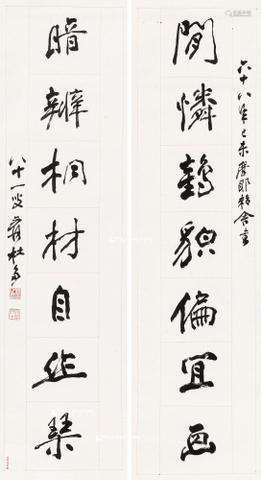 六十八年己未摩耶精舍書
閒憐鶴貌偏宜画
暗辨桐材自作琴
八十一叟爰杜多